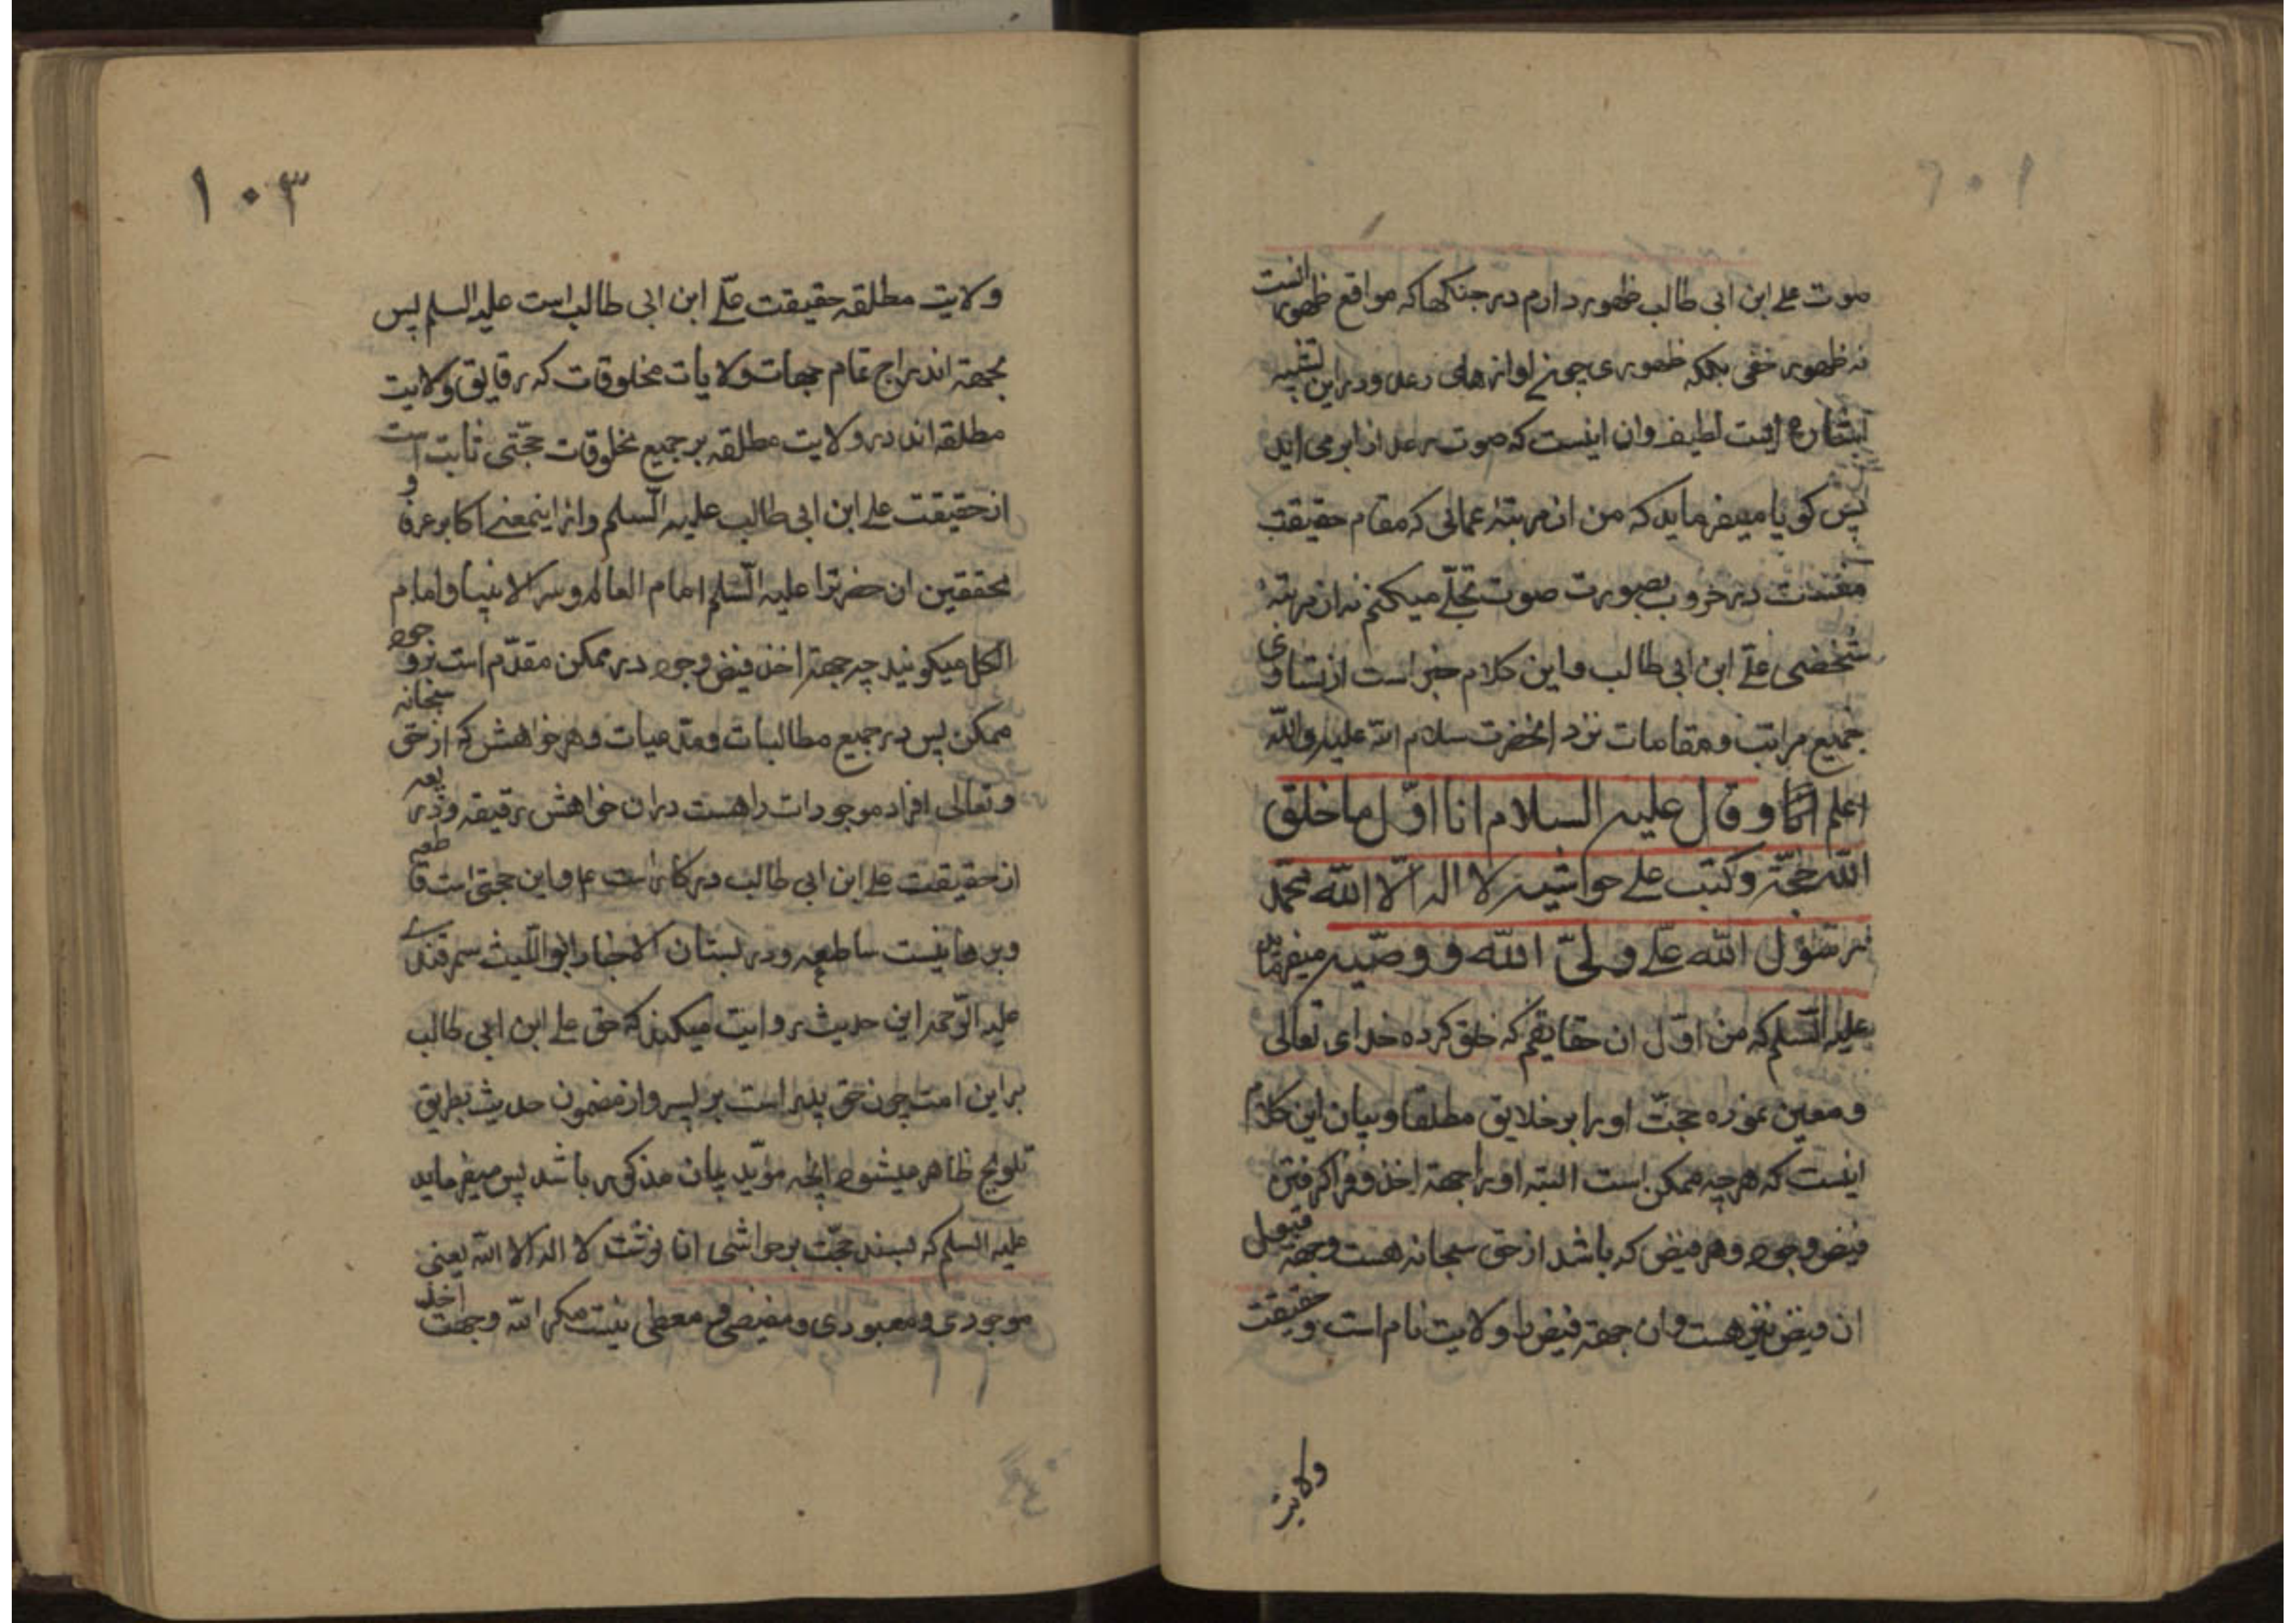 صوت علے ابن ابی طالب ظهور دارم در جنکها که مواقع ظهور انست
نه ظهور خفی بلکه ظهوری چونے اوازهای رعد و در این تشبیه
لطیف و ان اینست که صوت رعد از ابر می اید
پس کویا میفرماید که من از مرتبهٔ عمائی که مقام حقیقت
منست در حروب بصورت صوت تجلّے میکنم نه از مرتبهٔ
شخصی علے ابن ابی طالب و این کلام خبر است از تساوی
جمیع مراتب و مقامات نزد انحضرت سلام الله علیه والله
اعلم و قال علیه السلام انا اوّل ما خلق
الله حجّته و کتب علے حواشیه لا اله الّا الله محمّد
رسول الله علے ولیّ الله و وصّیه میفرماید
علیه السّلم که من اوّل ان حقایقم که خلق کرده خدای تعالی
و معین نموده حجّت او را بر خلایق مطلقا و بیان این کلام
اینست که هرچه ممکن است البته او را جهة اخذ و فرا کرفتن
فیض وجود و هر فیض که باشد از حق سبحانه هست و جهة قبول
ان فیض نیز هست و ان جهة فیض را ولایت نام است و حقیقت
ولایت
۱۰۳
ولایت مطلقه حقیقت علّے ابن ابی طالب است علیه السلم پس
بجهة اندراج تمام جهات ولایات مخلوقات که رقایق ولایت
مطلقه اند در ولایت مطلقه بر جمیع مخلوقات حجّتی ثابت است
از حقیقت علے ابن ابی طالب علیه السّلم و از اینمعنے اکابر عرفا و
محققین ان حضرترا علیه السّلم امام العالم و سر الانبیا و امام
الکل میکویند چه جهة اخذ فیض وجود در ممکن مقدّم است بر وجود
ممکن پس در جمیع مطالبات و مدعیات و هر خواهش که از حق سبحانه
و تعالی افراد موجودات را هست در ان خواهش رقیقه و ذریعه
از حقیقت علے ابن ابی طالب در کار است ع و این حجتی است قاطعه
و برهانیست ساطعه و در بستان الاخبار ابو اللّیث سمرقندے
علیه الرّحمه این حدیث روایت میکند که حق علے ابن ابی طالب
بر این امت چون حق پدر است بر پسر و از مضمون حدیث بطریق
تلویح ظاهر میشود انچه مؤیّد بیان مذکور باشد پس میفرماید
علیه السلم که بسند حجّت بر حواشی انا نوشت لا اله الا الله یعنی
موجودی و معبودی و مفیضی و معطی نیست مکر الله و جهت اخذ